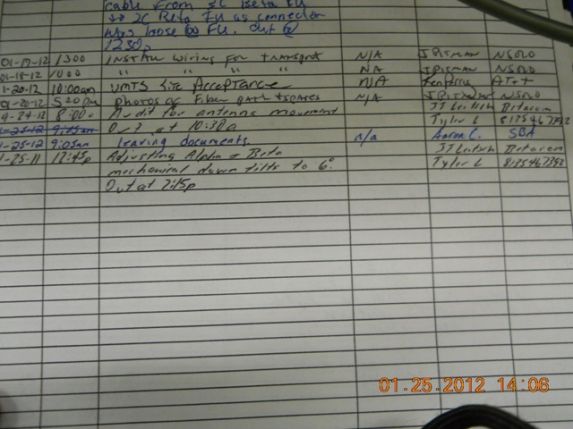 cable From 2C Beta FU
2C Beta FU as connector
was loose @ FU. Out @
1230.
01-19-12 1300 INSTALL wiring for transport N/A IPITMAN NSORO
01-18-12 1000 " " " " N/A IPITMAN NSORO
1-20-12 10:00am UMTS Site Acceptance N/A AT+T
01-20-12 520pm Photos of Fiber path + spares N/A IPITMAN NSORO
1-24-12 8:00a Audit for antenna movement JJ Leitsch Betacom
Out at 10:30a Tyler L 8135467352
1-25-12 9:05am
1-25-12 9:05am leaving documents. n/a Aaron C. SBA
1-25-11 12:45p Adjusting Alpha & Beta JJ Leitsch Betacom
mechanical down tilts to 6° Tyler L 8135467352
Out at 2:15p
01.25.2012 14:06